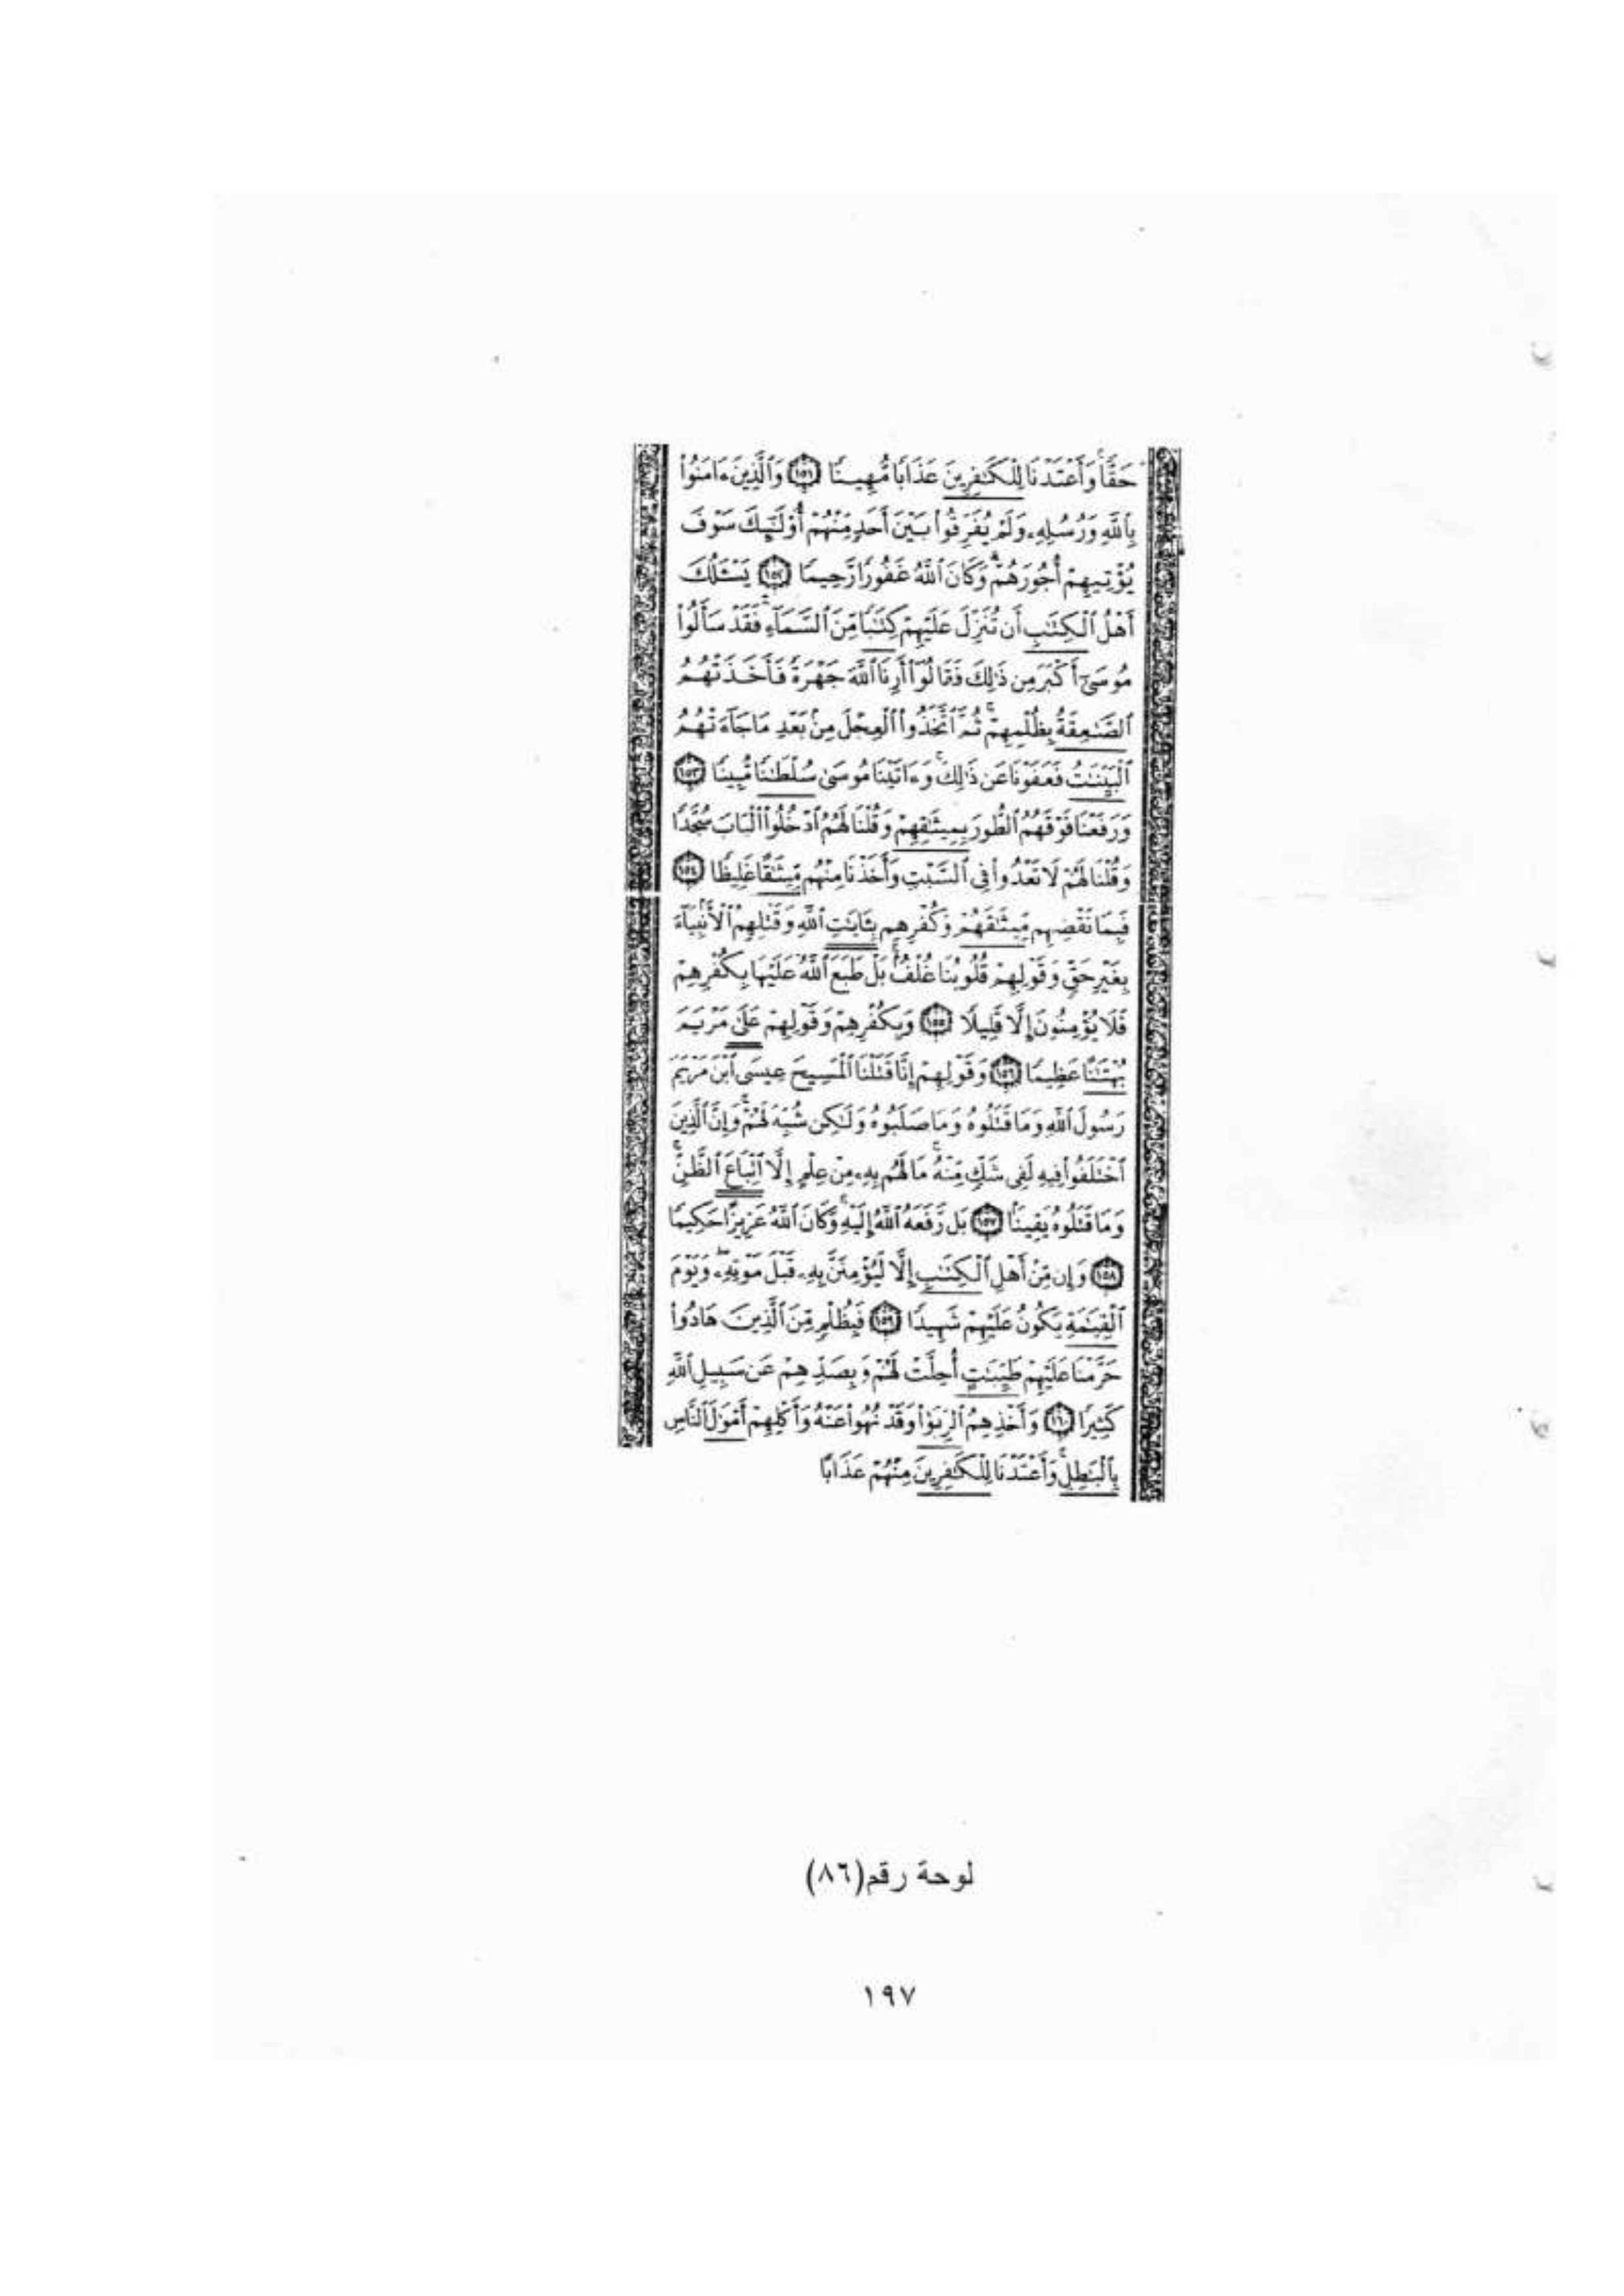 حَقًّا وَأَعْتَدْنَا لِلْكَٰفِرِينَ عَذَابًا مُّهِينًا ١٥١ وَٱلَّذِينَ ءَامَنُوا۟
بِٱللَّهِ وَرُسُلِهِۦ وَلَمْ يُفَرِّقُوا۟ بَيْنَ أَحَدٍ مِّنْهُمْ أُو۟لَٰٓئِكَ سَوْفَ
يُؤْتِيهِمْ أُجُورَهُمْ وَكَانَ ٱللَّهُ غَفُورًا رَّحِيمًا ١٥٢ يَسْـَٔلُكَ
أَهْلُ ٱلْكِتَٰبِ أَن تُنَزِّلَ عَلَيْهِمْ كِتَٰبًا مِّنَ ٱلسَّمَآءِ فَقَدْ سَأَلُوا۟
مُوسَىٰٓ أَكْبَرَ مِن ذَٰلِكَ فَقَالُوٓا۟ أَرِنَا ٱللَّهَ جَهْرَةً فَأَخَذَتْهُمُ
ٱلصَّٰعِقَةُ بِظُلْمِهِمْ ۚ ثُمَّ ٱتَّخَذُوا۟ ٱلْعِجْلَ مِنۢ بَعْدِ مَا جَآءَتْهُمُ
ٱلْبَيِّنَٰتُ فَعَفَوْنَا عَن ذَٰلِكَ ۚ وَءَاتَيْنَا مُوسَىٰ سُلْطَٰنًا مُّبِينًا ١٥٣
وَرَفَعْنَا فَوْقَهُمُ ٱلطُّورَ بِمِيثَٰقِهِمْ وَقُلْنَا لَهُمُ ٱدْخُلُوا۟ ٱلْبَابَ سُجَّدًا
وَقُلْنَا لَهُمْ لَا تَعْدُوا۟ فِى ٱلسَّبْتِ وَأَخَذْنَا مِنْهُم مِّيثَٰقًا غَلِيظًا ١٥٤
فَبِمَا نَقْضِهِم مِّيثَٰقَهُمْ وَكُفْرِهِم بِـَٔايَٰتِ ٱللَّهِ وَقَتْلِهِمُ ٱلْأَنۢبِيَآءَ
بِغَيْرِ حَقٍّ وَقَوْلِهِمْ قُلُوبُنَا غُلْفٌۢ ۚ بَلْ طَبَعَ ٱللَّهُ عَلَيْهَا بِكُفْرِهِمْ
فَلَا يُؤْمِنُونَ إِلَّا قَلِيلًا ١٥٥ وَبِكُفْرِهِمْ وَقَوْلِهِمْ عَلَىٰ مَرْيَمَ
بُهْتَٰنًا عَظِيمًا ١٥٦ وَقَوْلِهِمْ إِنَّا قَتَلْنَا ٱلْمَسِيحَ عِيسَى ٱبْنَ مَرْيَمَ
رَسُولَ ٱللَّهِ وَمَا قَتَلُوهُ وَمَا صَلَبُوهُ وَلَٰكِن شُبِّهَ لَهُمْ ۚ وَإِنَّ ٱلَّذِينَ
ٱخْتَلَفُوا۟ فِيهِ لَفِى شَكٍّ مِّنْهُ ۚ مَا لَهُم بِهِۦ مِنْ عِلْمٍ إِلَّا ٱتِّبَاعَ ٱلظَّنِّ ۚ
وَمَا قَتَلُوهُ يَقِينًۢا ١٥٧ بَل رَّفَعَهُ ٱللَّهُ إِلَيْهِ ۚ وَكَانَ ٱللَّهُ عَزِيزًا حَكِيمًا
١٥٨ وَإِن مِّنْ أَهْلِ ٱلْكِتَٰبِ إِلَّا لَيُؤْمِنَنَّ بِهِۦ قَبْلَ مَوْتِهِۦ ۖ وَيَوْمَ
ٱلْقِيَٰمَةِ يَكُونُ عَلَيْهِمْ شَهِيدًا ١٥٩ فَبِظُلْمٍ مِّنَ ٱلَّذِينَ هَادُوا۟
حَرَّمْنَا عَلَيْهِمْ طَيِّبَٰتٍ أُحِلَّتْ لَهُمْ وَبِصَدِّهِمْ عَن سَبِيلِ ٱللَّهِ
كَثِيرًا ١٦٠ وَأَخْذِهِمُ ٱلرِّبَوٰا۟ وَقَدْ نُهُوا۟ عَنْهُ وَأَكْلِهِمْ أَمْوَٰلَ ٱلنَّاسِ
بِٱلْبَٰطِلِ ۚ وَأَعْتَدْنَا لِلْكَٰفِرِينَ مِنْهُمْ عَذَابًا
لوحة رقم(٨٦)
١٩٧